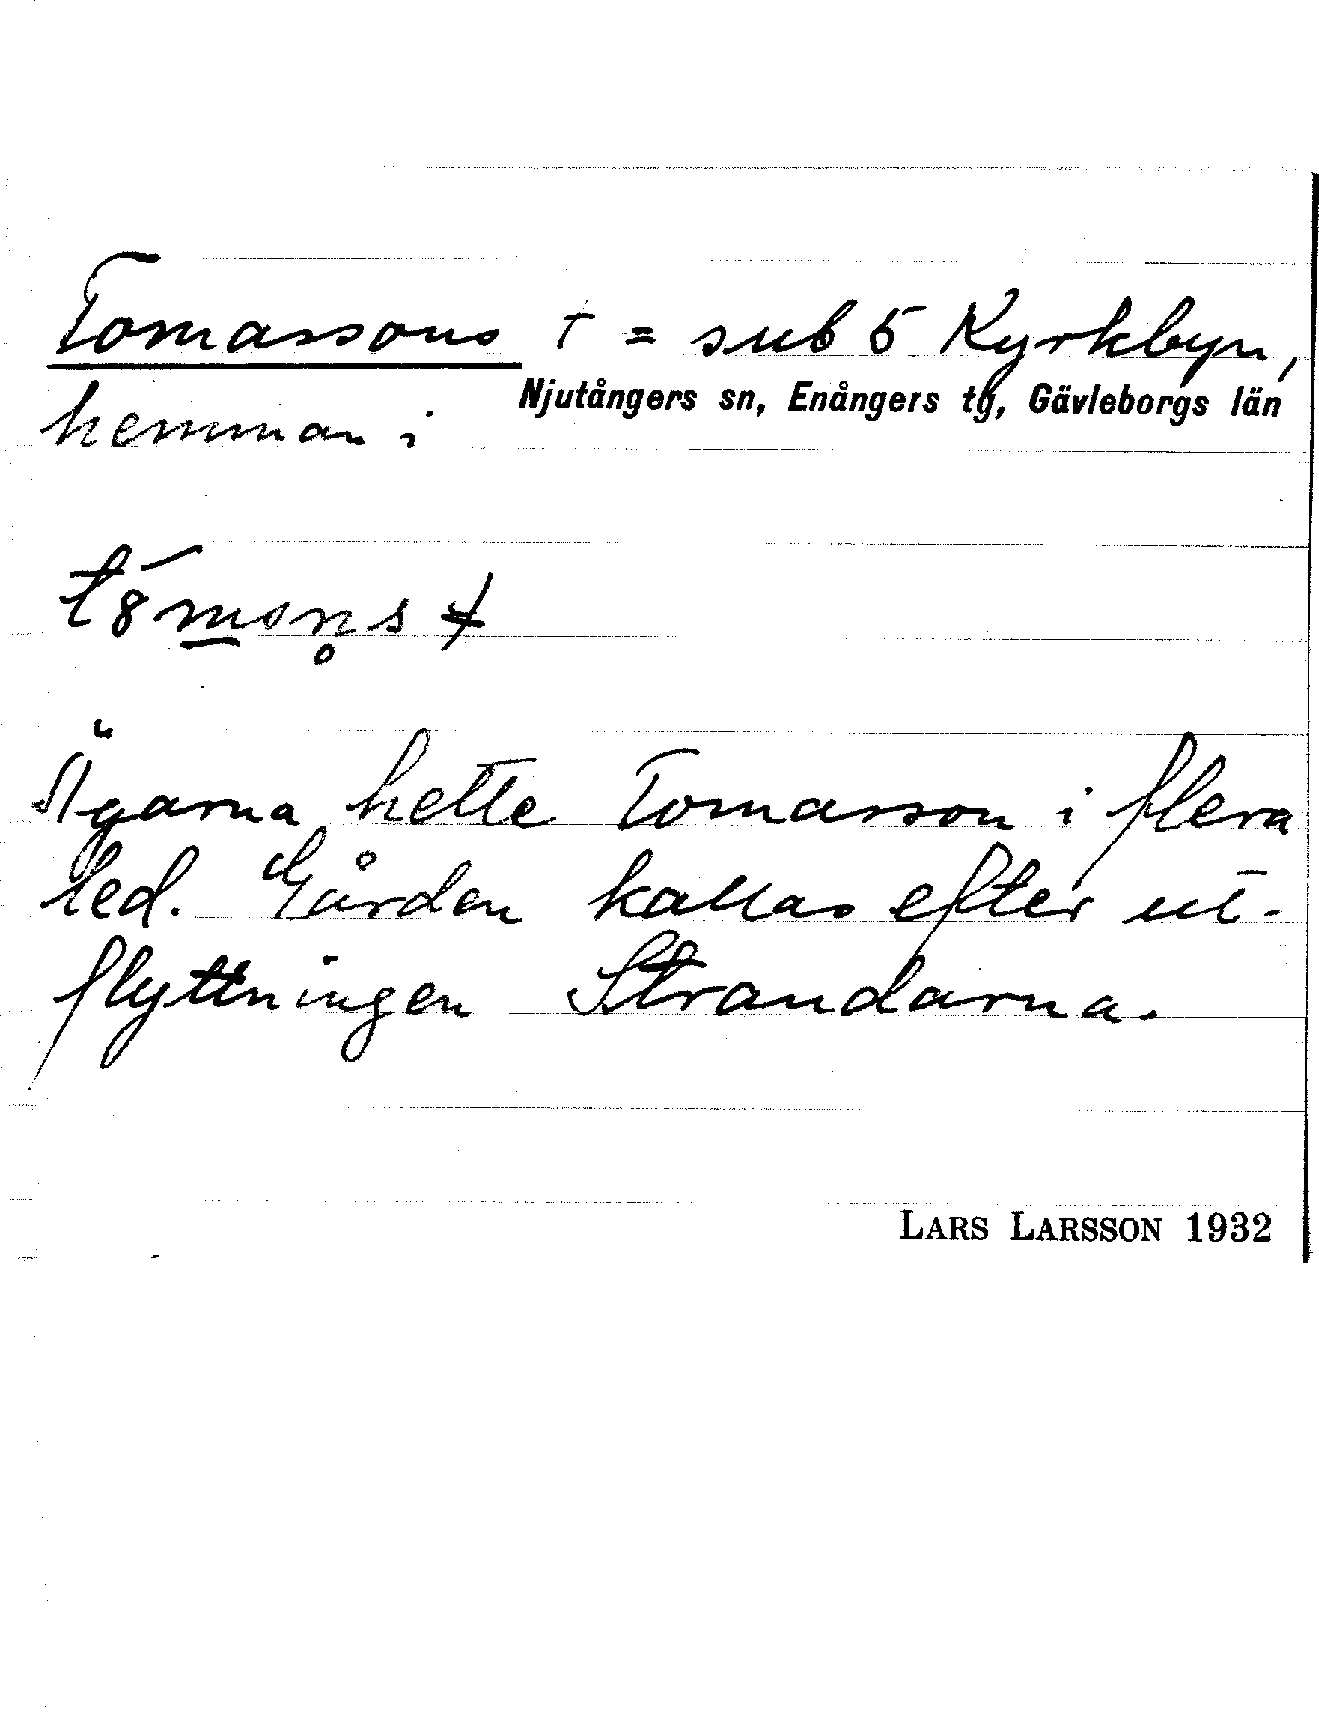 Tomassons † = sub 5 Kyrkbyn,
hemman i Njutångers sn, Enångers tg, Gävleborgs län
Ägarna hette Tomasson i flera
led. Gården kallas efter ut-
flyttningen Strandarna.
LARS LARSSON 1932